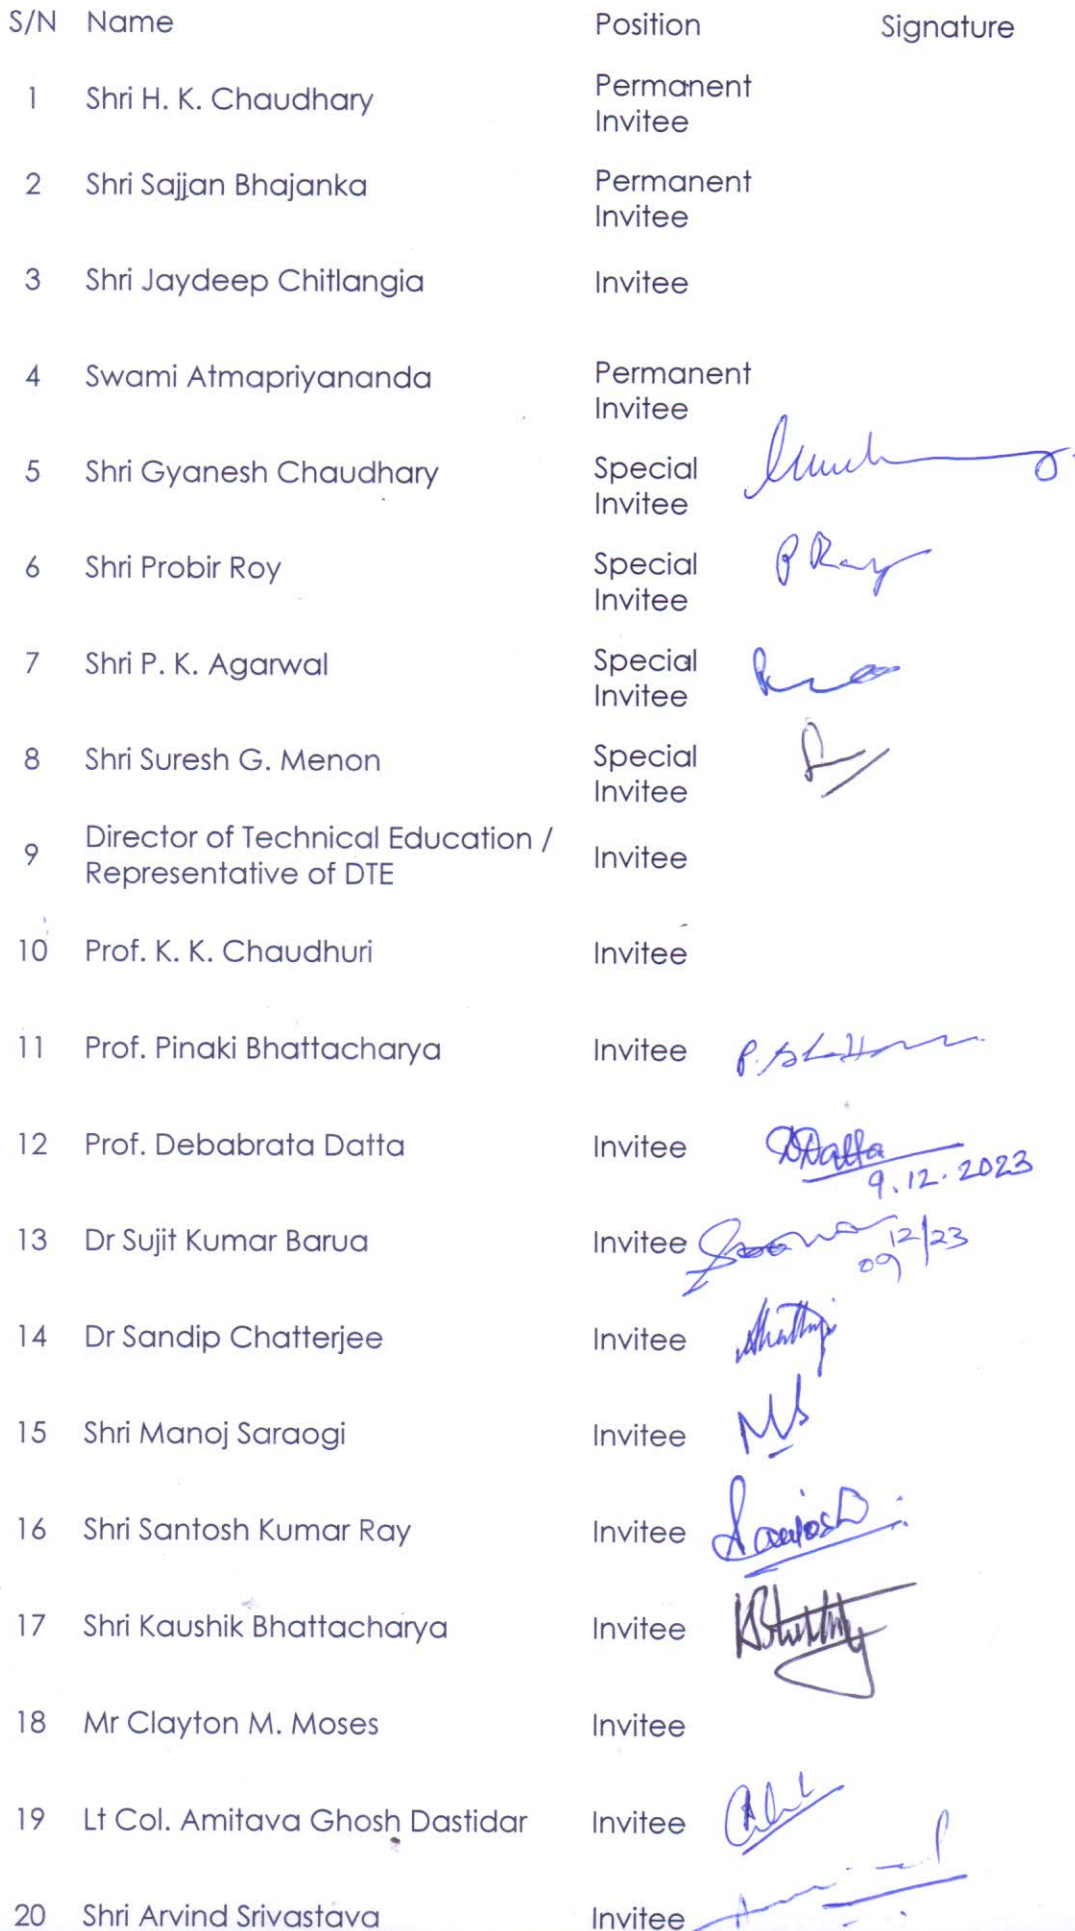 S/N Name Position Signature
1 Shri H. K. Chaudhary Permanent
Invitee
2 Shri Sajjan Bhajanka Permanent
Invitee
3 Shri Jaydeep Chitlangia Invitee
4 Swami Atmapriyananda Permanent
Invitee
5 Shri Gyanesh Chaudhary Special
Invitee
6 Shri Probir Roy Special P Ray
Invitee
7 Shri P. K. Agarwal Special
Invitee
8 Shri Suresh G. Menon Special
Invitee
9 Director of Technical Education /
Representative of DTE Invitee
10 Prof. K. K. Chaudhuri Invitee
11 Prof. Pinaki Bhattacharya Invitee
12 Prof. Debabrata Datta Invitee DDatta
9.12.2023
13 Dr Sujit Kumar Barua Invitee 09/12/23
14 Dr Sandip Chatterjee Invitee
15 Shri Manoj Saraogi Invitee MS
16 Shri Santosh Kumar Ray Invitee Santosh
17 Shri Kaushik Bhattacharya Invitee
18 Mr Clayton M. Moses Invitee
19 Lt Col. Amitava Ghosh Dastidar Invitee
20 Shri Arvind Srivastava Invitee